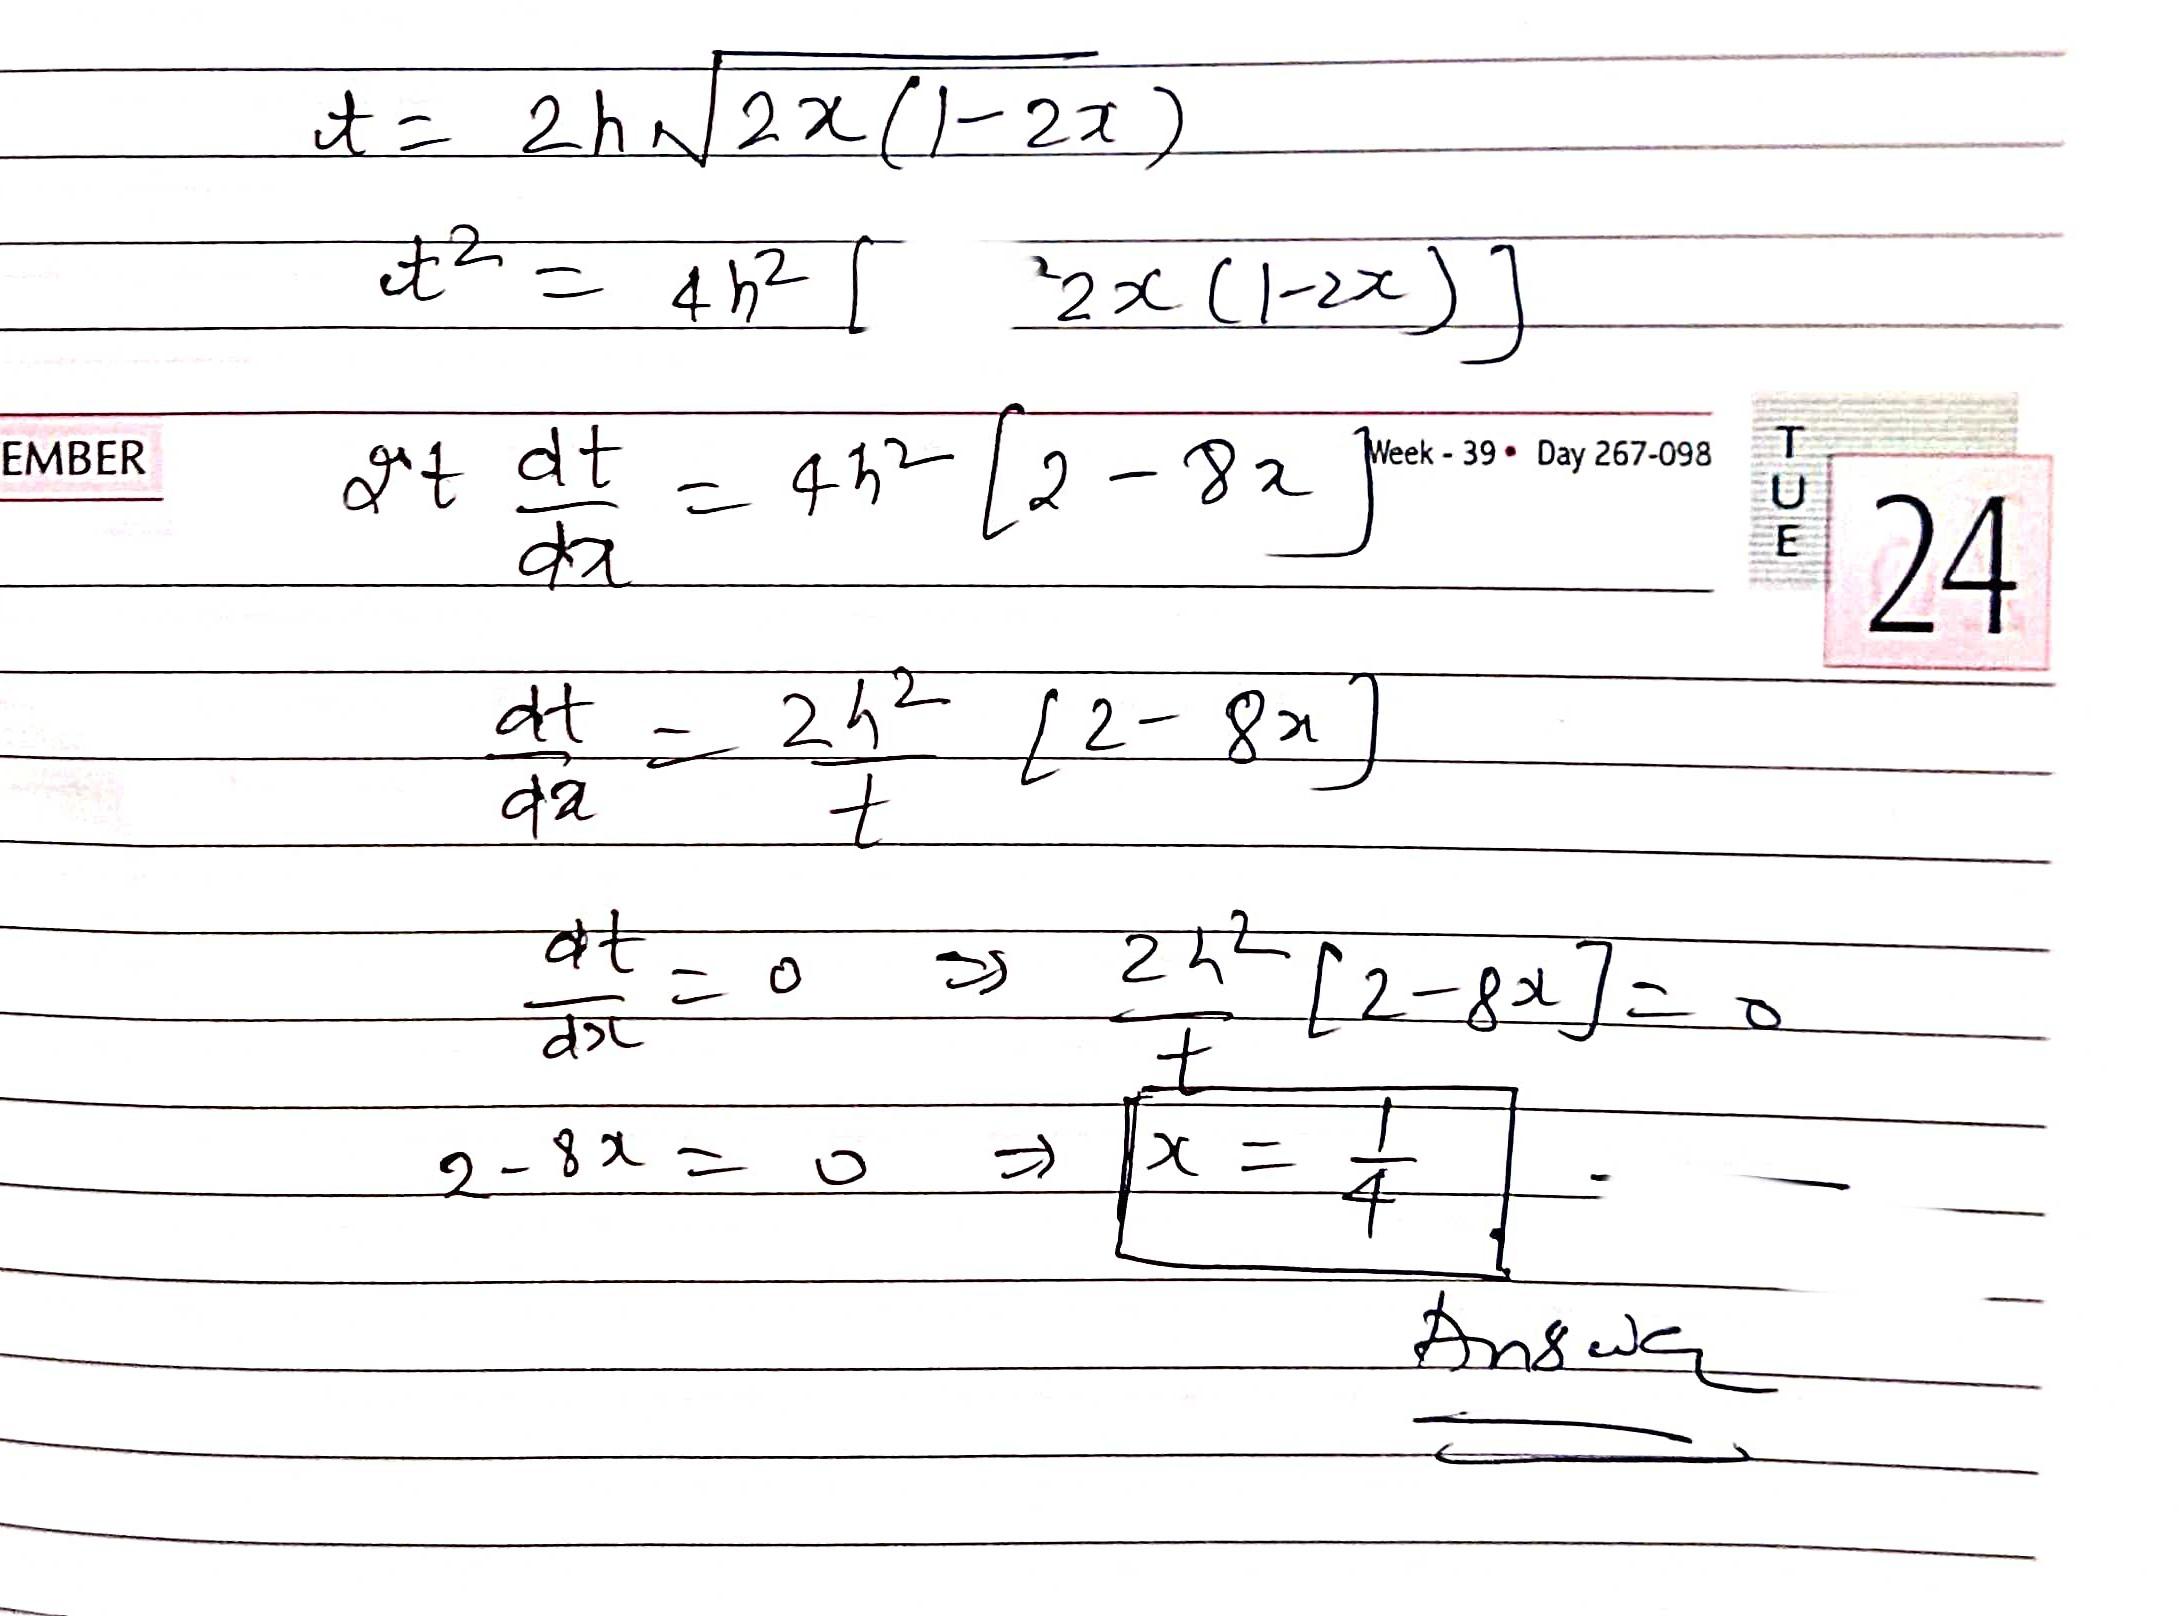 t = 2h√2x(1-2x)
t² = 4h² [ ²2x (1-2x) ]
EMBER
2t dt/dx = 4h² [2 - 8x]
Week - 39 • Day 267-098
TUE
24
dt/dx = 2h²/t [2 - 8x]
dt/dx = 0 ⇒ 2h²/t [2-8x] = 0
2 - 8x = 0 ⇒ x = 1/4
Answer